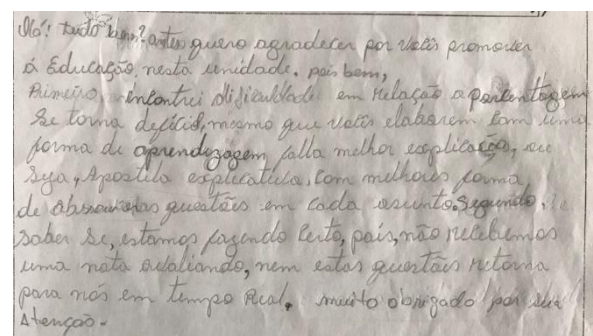 Olá! tudo bem? antes quero agradecer por vocês promover
á Educação nesta unidade. pois bem,
Primeiro, encontrei dificuldade em relação a porcentagem
Se torna defícil, mesmo que vocês elaborem com uma
forma de aprendizagem falta melhor explicação, ou
Seja, Apostila explicativa, com melhores forma
de as questões em cada assunto. Segundo,
saber se, estamos fazendo certo, pois, não recebemos
uma nota avaliando, nem estas questões retorna
para nós em tempo Real. muito obrigado por sua
Atenção.